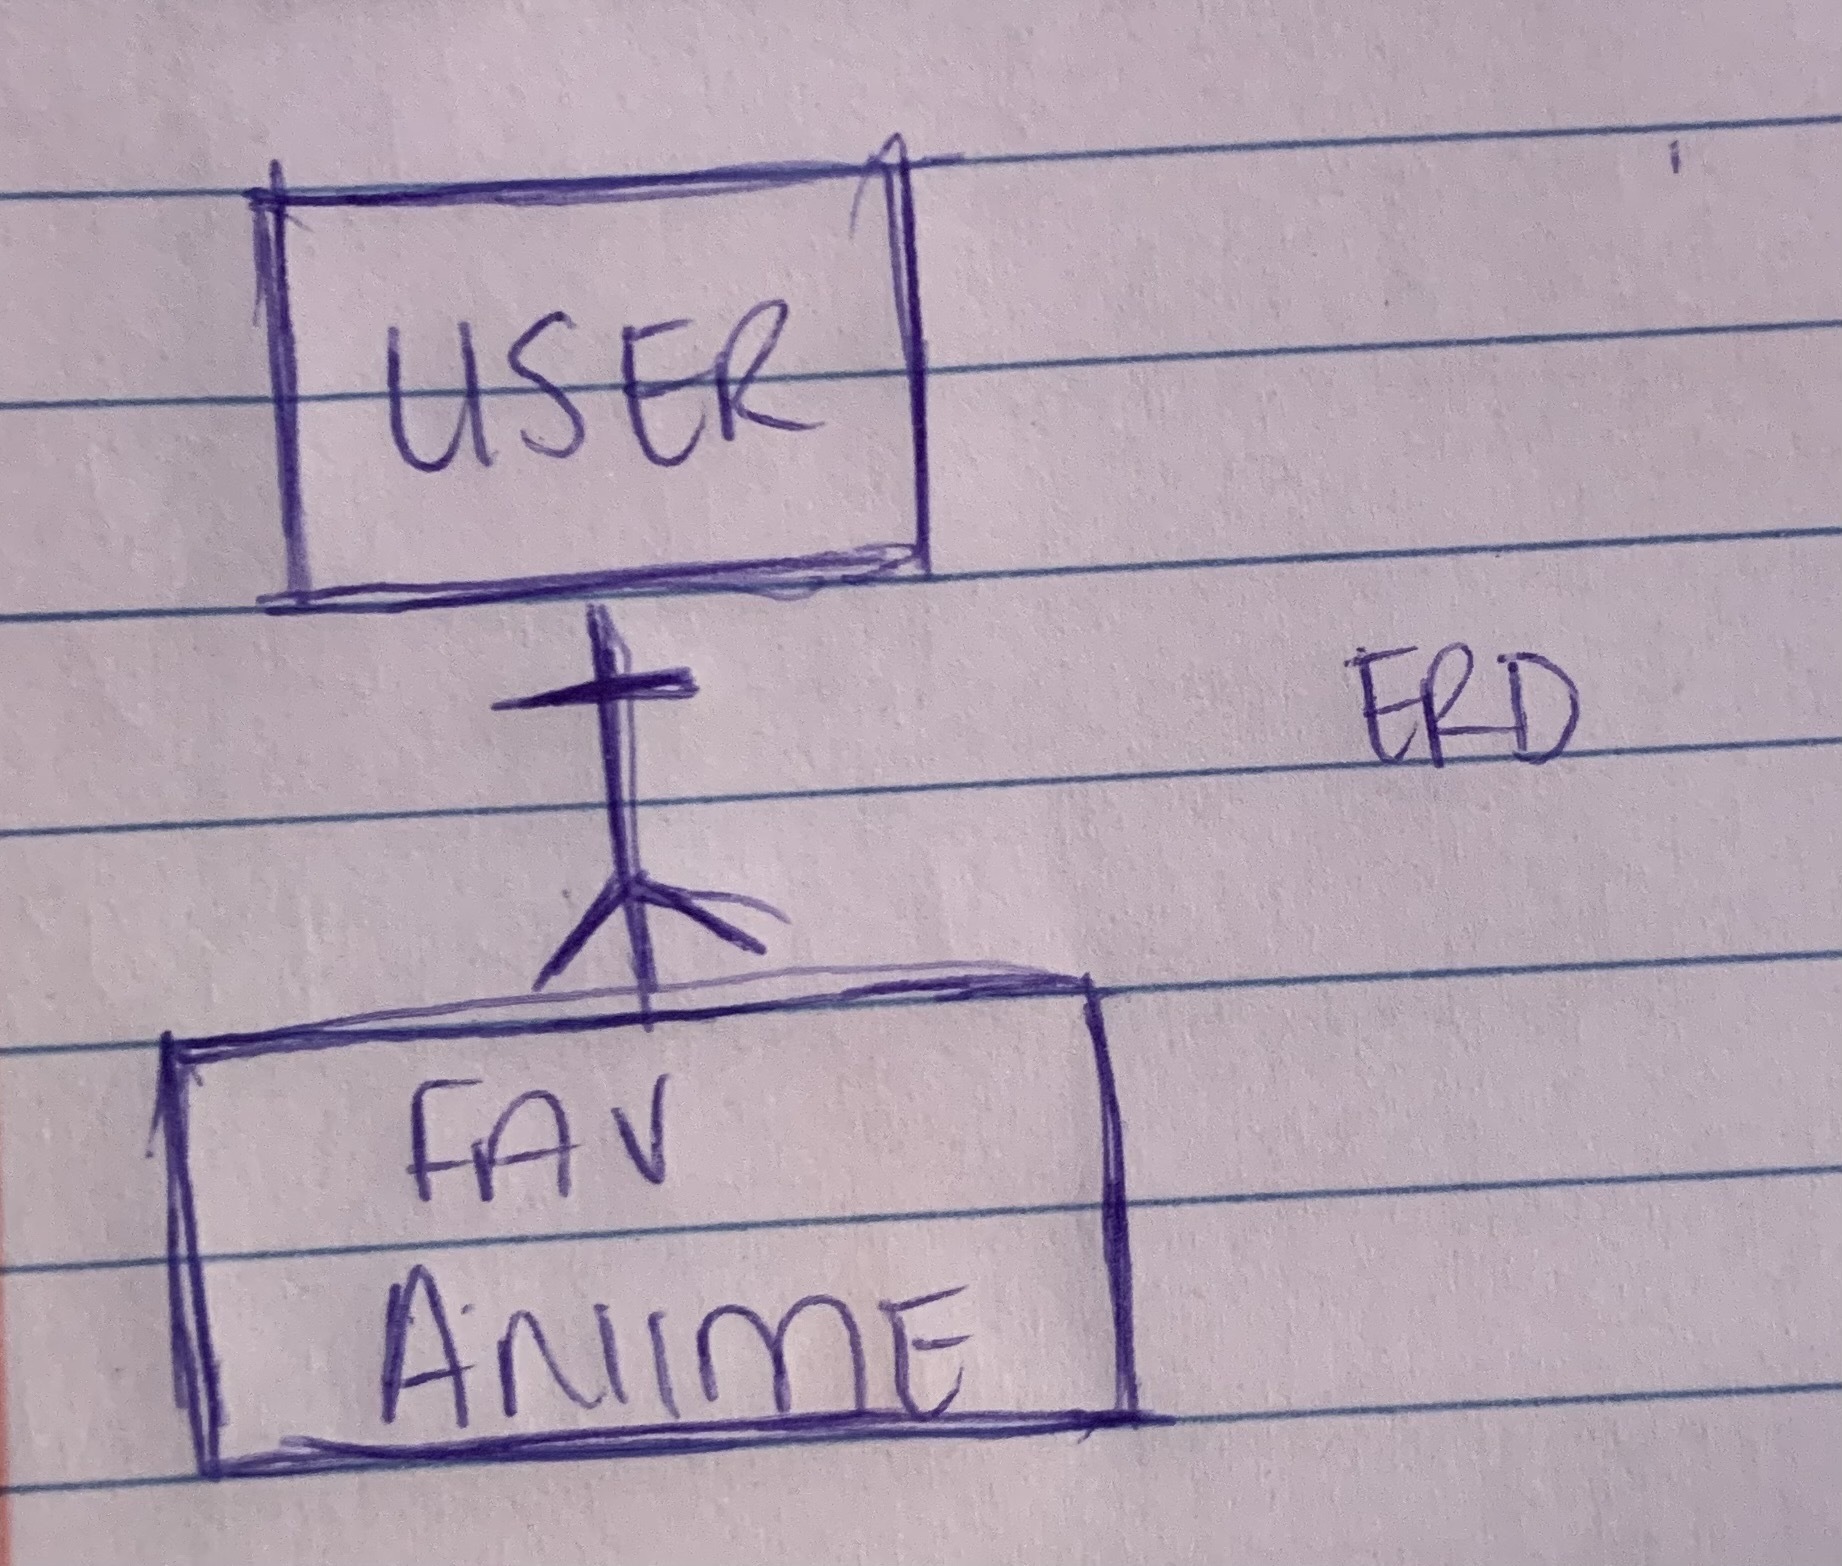 USER
ERD
FAV
ANIME